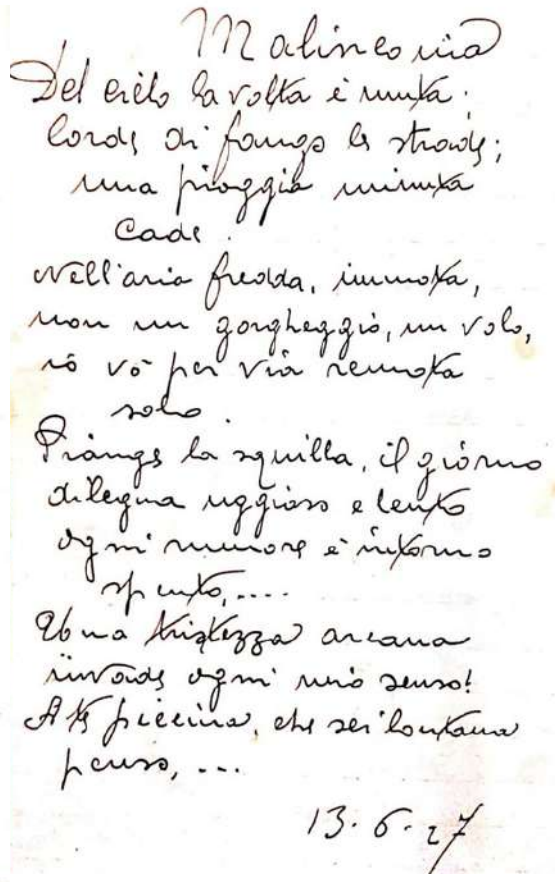 Malinconia
Del cielo la volta è muta;
lorde di fango le strade;
una pioggia minuta
cade.
Nell'aria fredda, immota,
non un gorgheggio, un volo,
io vò per via remota
solo.
Piange la squilla, il giorno
dilegua uggioso e lento
ogni rumore è intorno
spento,....
Una tristezza arcana
invade ogni mio senso!
A te piccina, che sei lontana
penso, ...
13.6.27